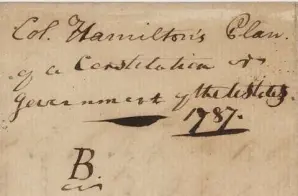 Col. Hamilton's Plan.
of a Constitution or
Government of the U States.
1787.
B.